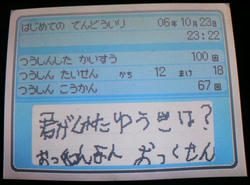 はじめての てんどういり 06年10月23日
23:22
つうしんした かいすう 100回
つうしん たいせん かち 12 まけ 18
つうしん こうかん 67回
君がくれたゆうきは?
おっくせんまん おっくせん